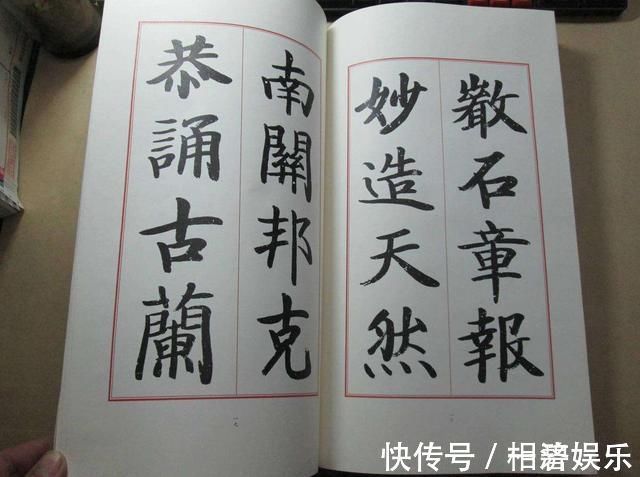 石章報
妙造天然
南關邦克
恭誦古蘭
一七
快传号／相娱乐